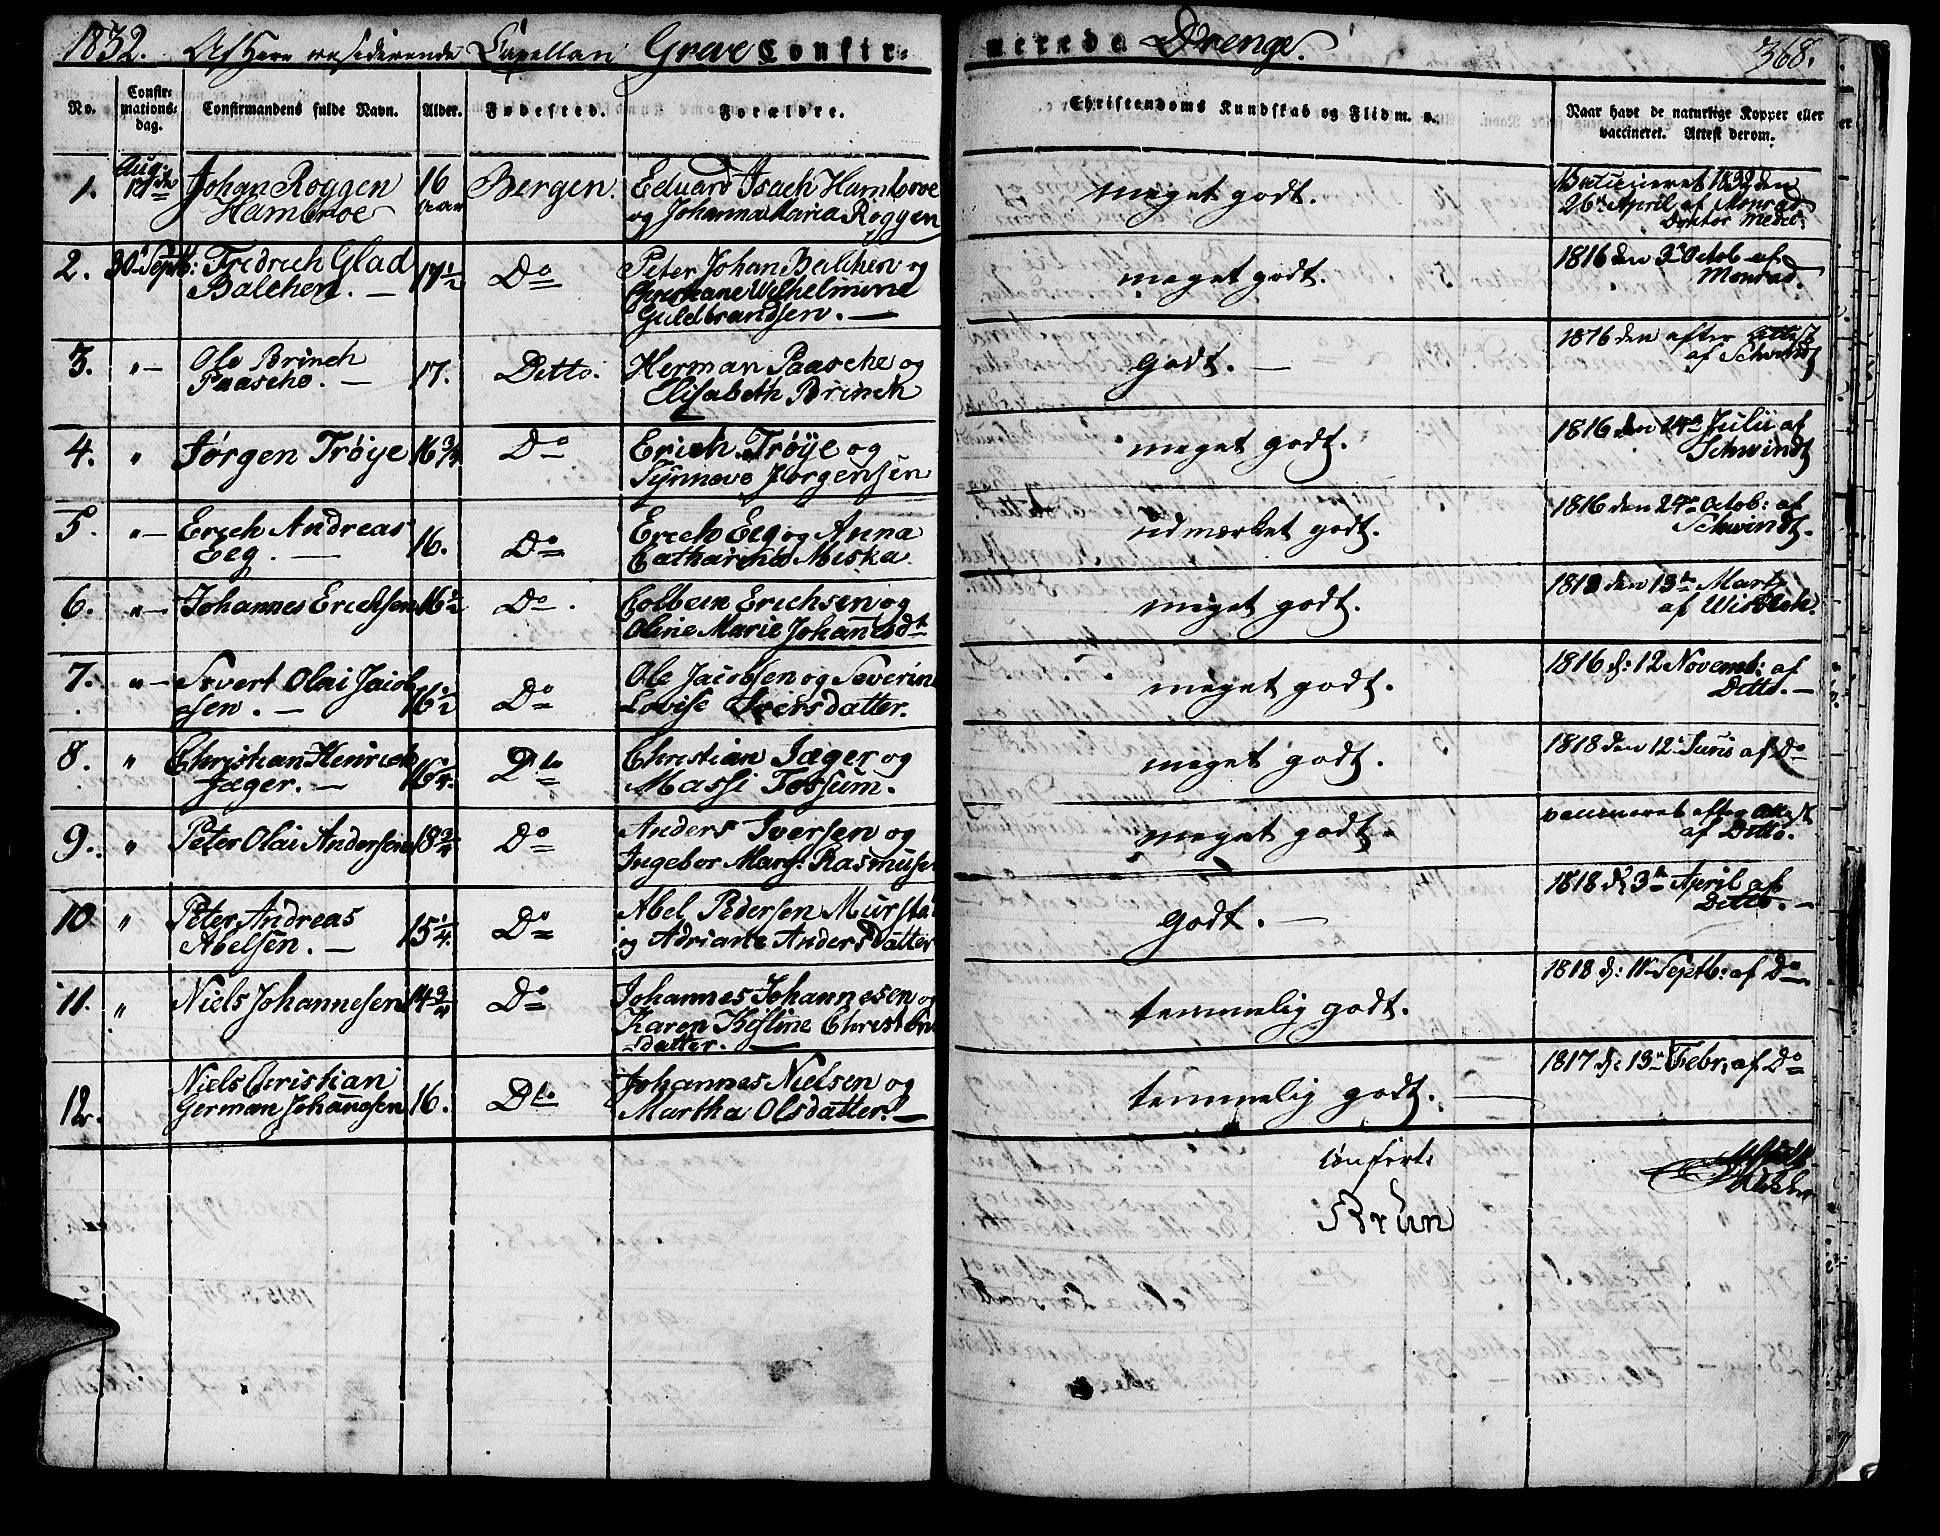 1832. Af Herr residerende Capellan Greve Confir-
merede Drenge. 368.
No. Confir-mations-dag. Confirmandens fulde Navn. Alder. Fødested. Forældre. Christendoms Kundskab og Flid m. v. Naar havt de naturlige Kopper eller
vaccineret. Attest derom.
1. Aug: Johan Roggen 16 Bergen. Eduard Isach Hambroe meget godt. Vaccineret 1832 den
Hambroe aar og Johanna Maria Roggen 26 April af Monrad
Doktor Medic:
2. 30 Septb: Fredrich Glad 17 1/2 Do Peter Johan Balchen og meget godt. 1816 den 3 Octob af
Balchen. — Christiane Wilhelmine Monrad.
Guldbrandsen. —
3. "— Ole Brinch 17. Ditto. Herman Paasche og Godt. — 1816 den after Attest
Paasche. — Elisabeth Brinch af Schwindt
4. " Jørgen Trøye 16 3/4 Do Erich Trøye og meget godt. 1816 den 24de Julii af
Synneve Jørgensen Schwindt
5. "— Erich Andreas 16. Do Erich Eeg og Anna udmærket godt. 1816 den 24de Octob: af
Eeg. — Catharina Miska Schwindt.
6. "— Johannes Erichsen 16 1/2 Do. Colbein Erichsen og meget godt. 1818 den 13de Marts
Oline Marie Johannesdt af
7. "— Sivert Olai Jacob 16 1/2 Do Ole Jacobsen og Severine meget godt. 1816 d: 12 Novemb: af
sen. — Lovise Iversdatter. Ditto. —
8. " Christian Henrich Dto Christian Jæger og meget godt. 1818 den 12 Junis af Do
Jæger. — Massi Tossum.
9. " Peter Olai Andersen 18 3/4 Do Anders Iversen og meget godt. vaccineret efter Attest
Ingebor Marg: Rasmusen af Ditto.
10 " Peter Andreas 15 1/4. Do Abel Pedersen Godt. — 1818 d: 3de April af
Abelsen. — og Adriane Andersdatter Ditto. —
11. " Niels Johannesen 14 3/4 Do Johannes Johannesen og temmelig godt. 1818 d: 11 Septb: af Do
Karen Kistine
datter. —
12. Niels Christian 16. Dto Johannes Nielsen og temmelig godt. 1817 d: 13 Febr, af Do
German Johannesen Martha Olsdatter. —
confert:
Krun